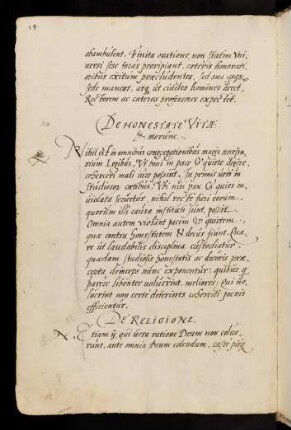 ambulent. Finita oratione, non statim Vni-
uersi sese foras proripiant, ceteris honorati-
oribus exitum præcludentes, sed suo quisque
sede maneat, atque ut ciuiles homines decet,
Rectorem ac cæteros professores expectet.
DE HONESTATE VITÆ
& morum.
Nihil est in omnibus congregationibus magis necessa-
rium Legibus, Vt boni in pace & quiete degere,
coherceri mali vice possint. In primis verò in
studiosorum cœtibus. Vbi nisi pax & quies in-
uiolata seruetur, nihil recte fieri eorum,
quorum illi causa instituti sunt, potest.
Omnia autem violant pacem & quietem,
quæ contra honestatem & decus fiunt. Qua-
re ut laudabilis disciplina custodiatur
quædam studiosis honestatis ac decoris præ-
cepta deinceps nunc exponentur: quibus qui
parere libenter voluerint, meliores: Qui no-
luerint non certe deteriores coherciti poenis
efficientur.
DE RELIGIONE.
Etiam ij, qui vera ratione Deum non colue-
runt, ante omnia Deum colendum, caste pieque